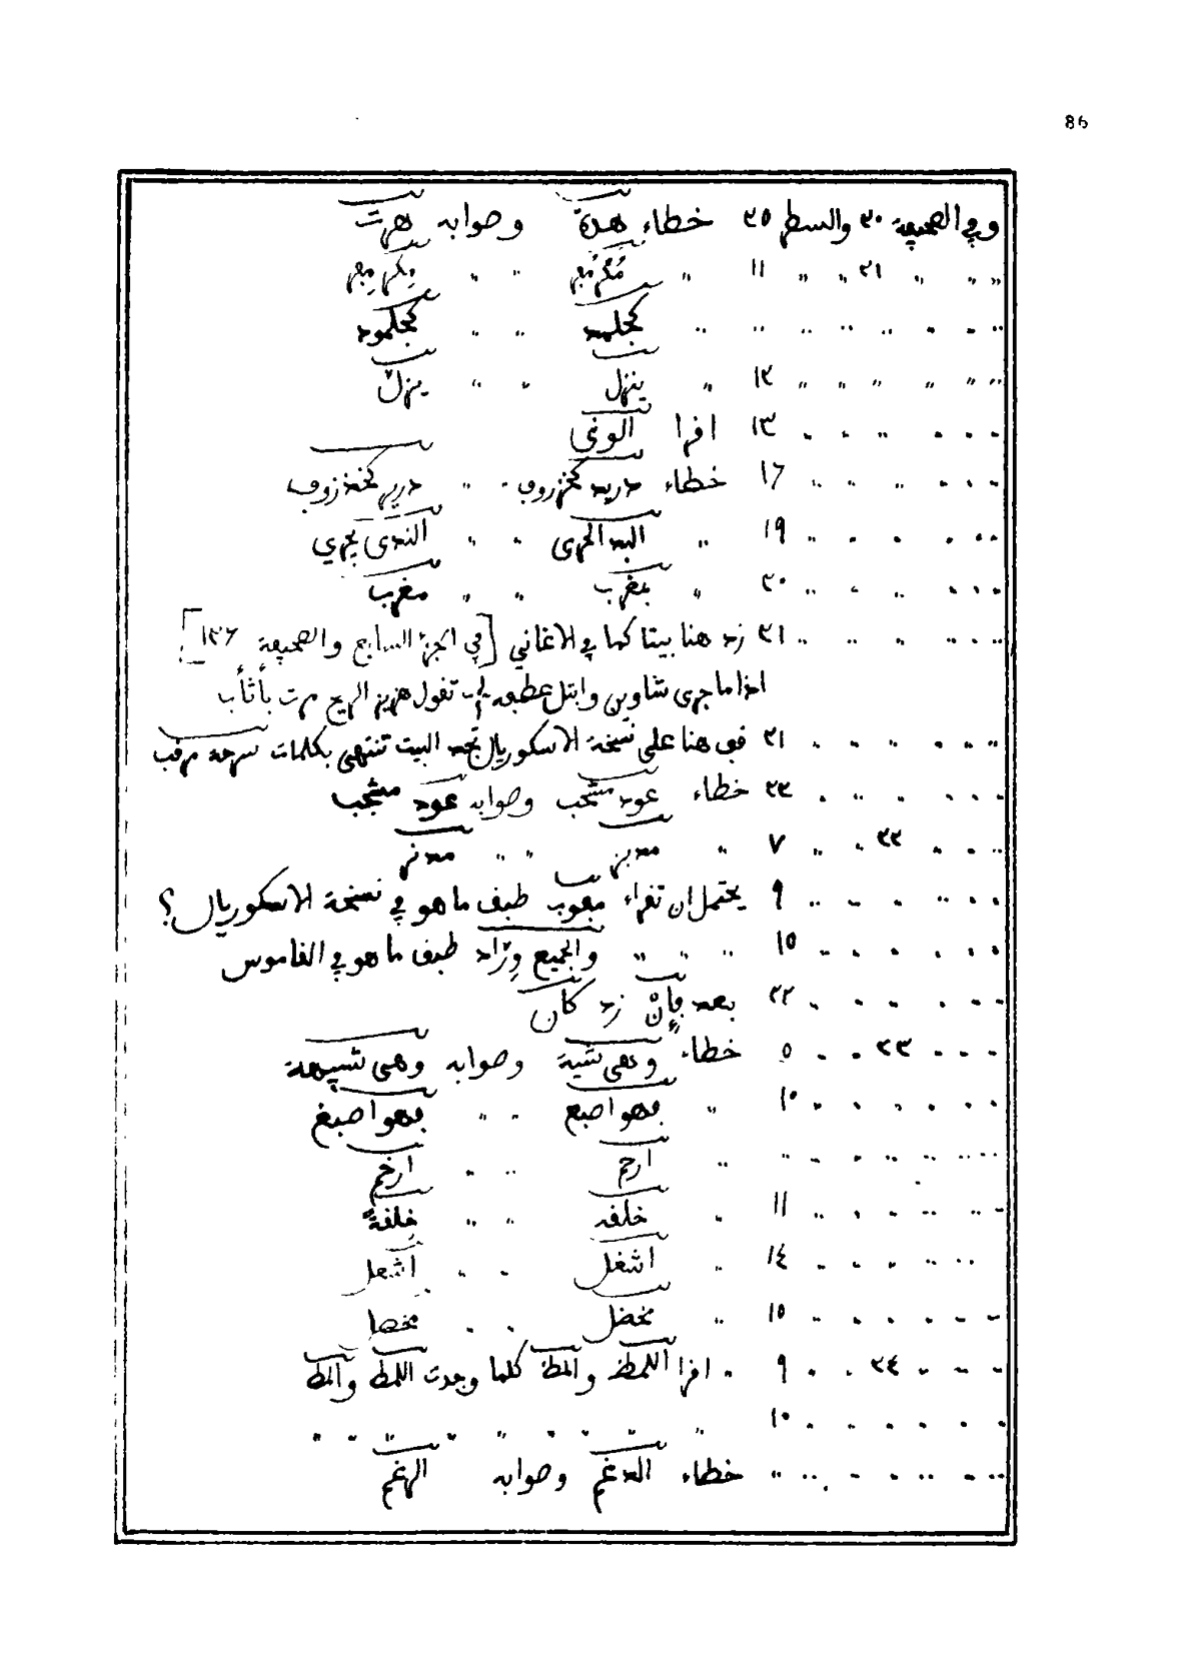 86
وفي الصحيفة ٣٠ والسطر ٢٥ خطاء هدة وصوابه هرت
,, ,, ,, ٢١ ,, ,, ١١ ,, ,, ,,
,, ,, ,, ,, ,, ,, ,, ,, كجلمد ,, ,, كجلمود
,, ,, ,, ,, ,, ,, ١٢ ,, ينزل ,, ,, يزل
,, ,, ,, ,, ,, ١٣ اقرا الونى
,, ,, ,, ,, ,, ,, ١٦ خطاء دريد كخزروف ,, ,, درير كخذروف
,, ,, ,, ,, ,, ١٩ ,, ,, ,, الندى يجري
,, ,, ,, ,, ,, ٢٠ ,, بمغرب ,, ,, مغرب
,, ,, ,, ,, ,, ٢١ زد هنا بيتا كما في الاغاني [في الجزء السابع والصحيفة ١٢٦]
اذا ما جرى شاوين وابتل عطفه تقول هزيز الريح مرت بأثأب
,, ,, ,, ,, ,, ٢١ قف هنا على نسخة الاسكوريال تجد البيت تنتهى بكلمات سرحة مرقب
,, ,, ,, ,, ,, ٢٣ خطاء عود مشجب وصوابه عود مشجب
,, ,, ,, ٢٢ ,, ,, ٧ ,, ,, ,,
,, ,, ,, ,, ,, ٩ يحتمل ان تقراء طبق ما هو في نسخة الاسكوريال؟
,, ,, ,, ,, ,, ١٥ ,, ,, ,, والجميع وزاد طبق ما هو في القاموس
,, ,, ,, ,, ,, ٢٢ بعد فإن زد كان
,, ,, ,, ٢٣ ,, ,, ٥ خطاء وهى شية وصوابه وهى شبيهة
,, ,, ,, ,, ,, ,, ١٠ ,, فهو اصبع ,, ,, فهو اصبغ
,, ,, ,, ,, ,, ,, ,, ,, ارحم ,, ,, ارخم
,, ,, ,, ,, ,, ,, ١١ ,, خلفه ,, ,, خلفة
,, ,, ,, ,, ,, ١٤ ,, اشغل ,, ,, اشعل
,, ,, ,, ,, ,, ,, ١٥ ,, مخضل ,, ,,
,, ,, ,, ٢٤ ,, ,, ٩ ,, اقرا اللمظ والمظ كلما وجدت اللمط والمط
,, ,, ,, ,, ,, ,, ١٠ ,, ,, ,, ,, ,, ,, ,, ,,
,, ,, ,, ,, ,, ,, ,, خطاء الدغم وصوابه الرغم